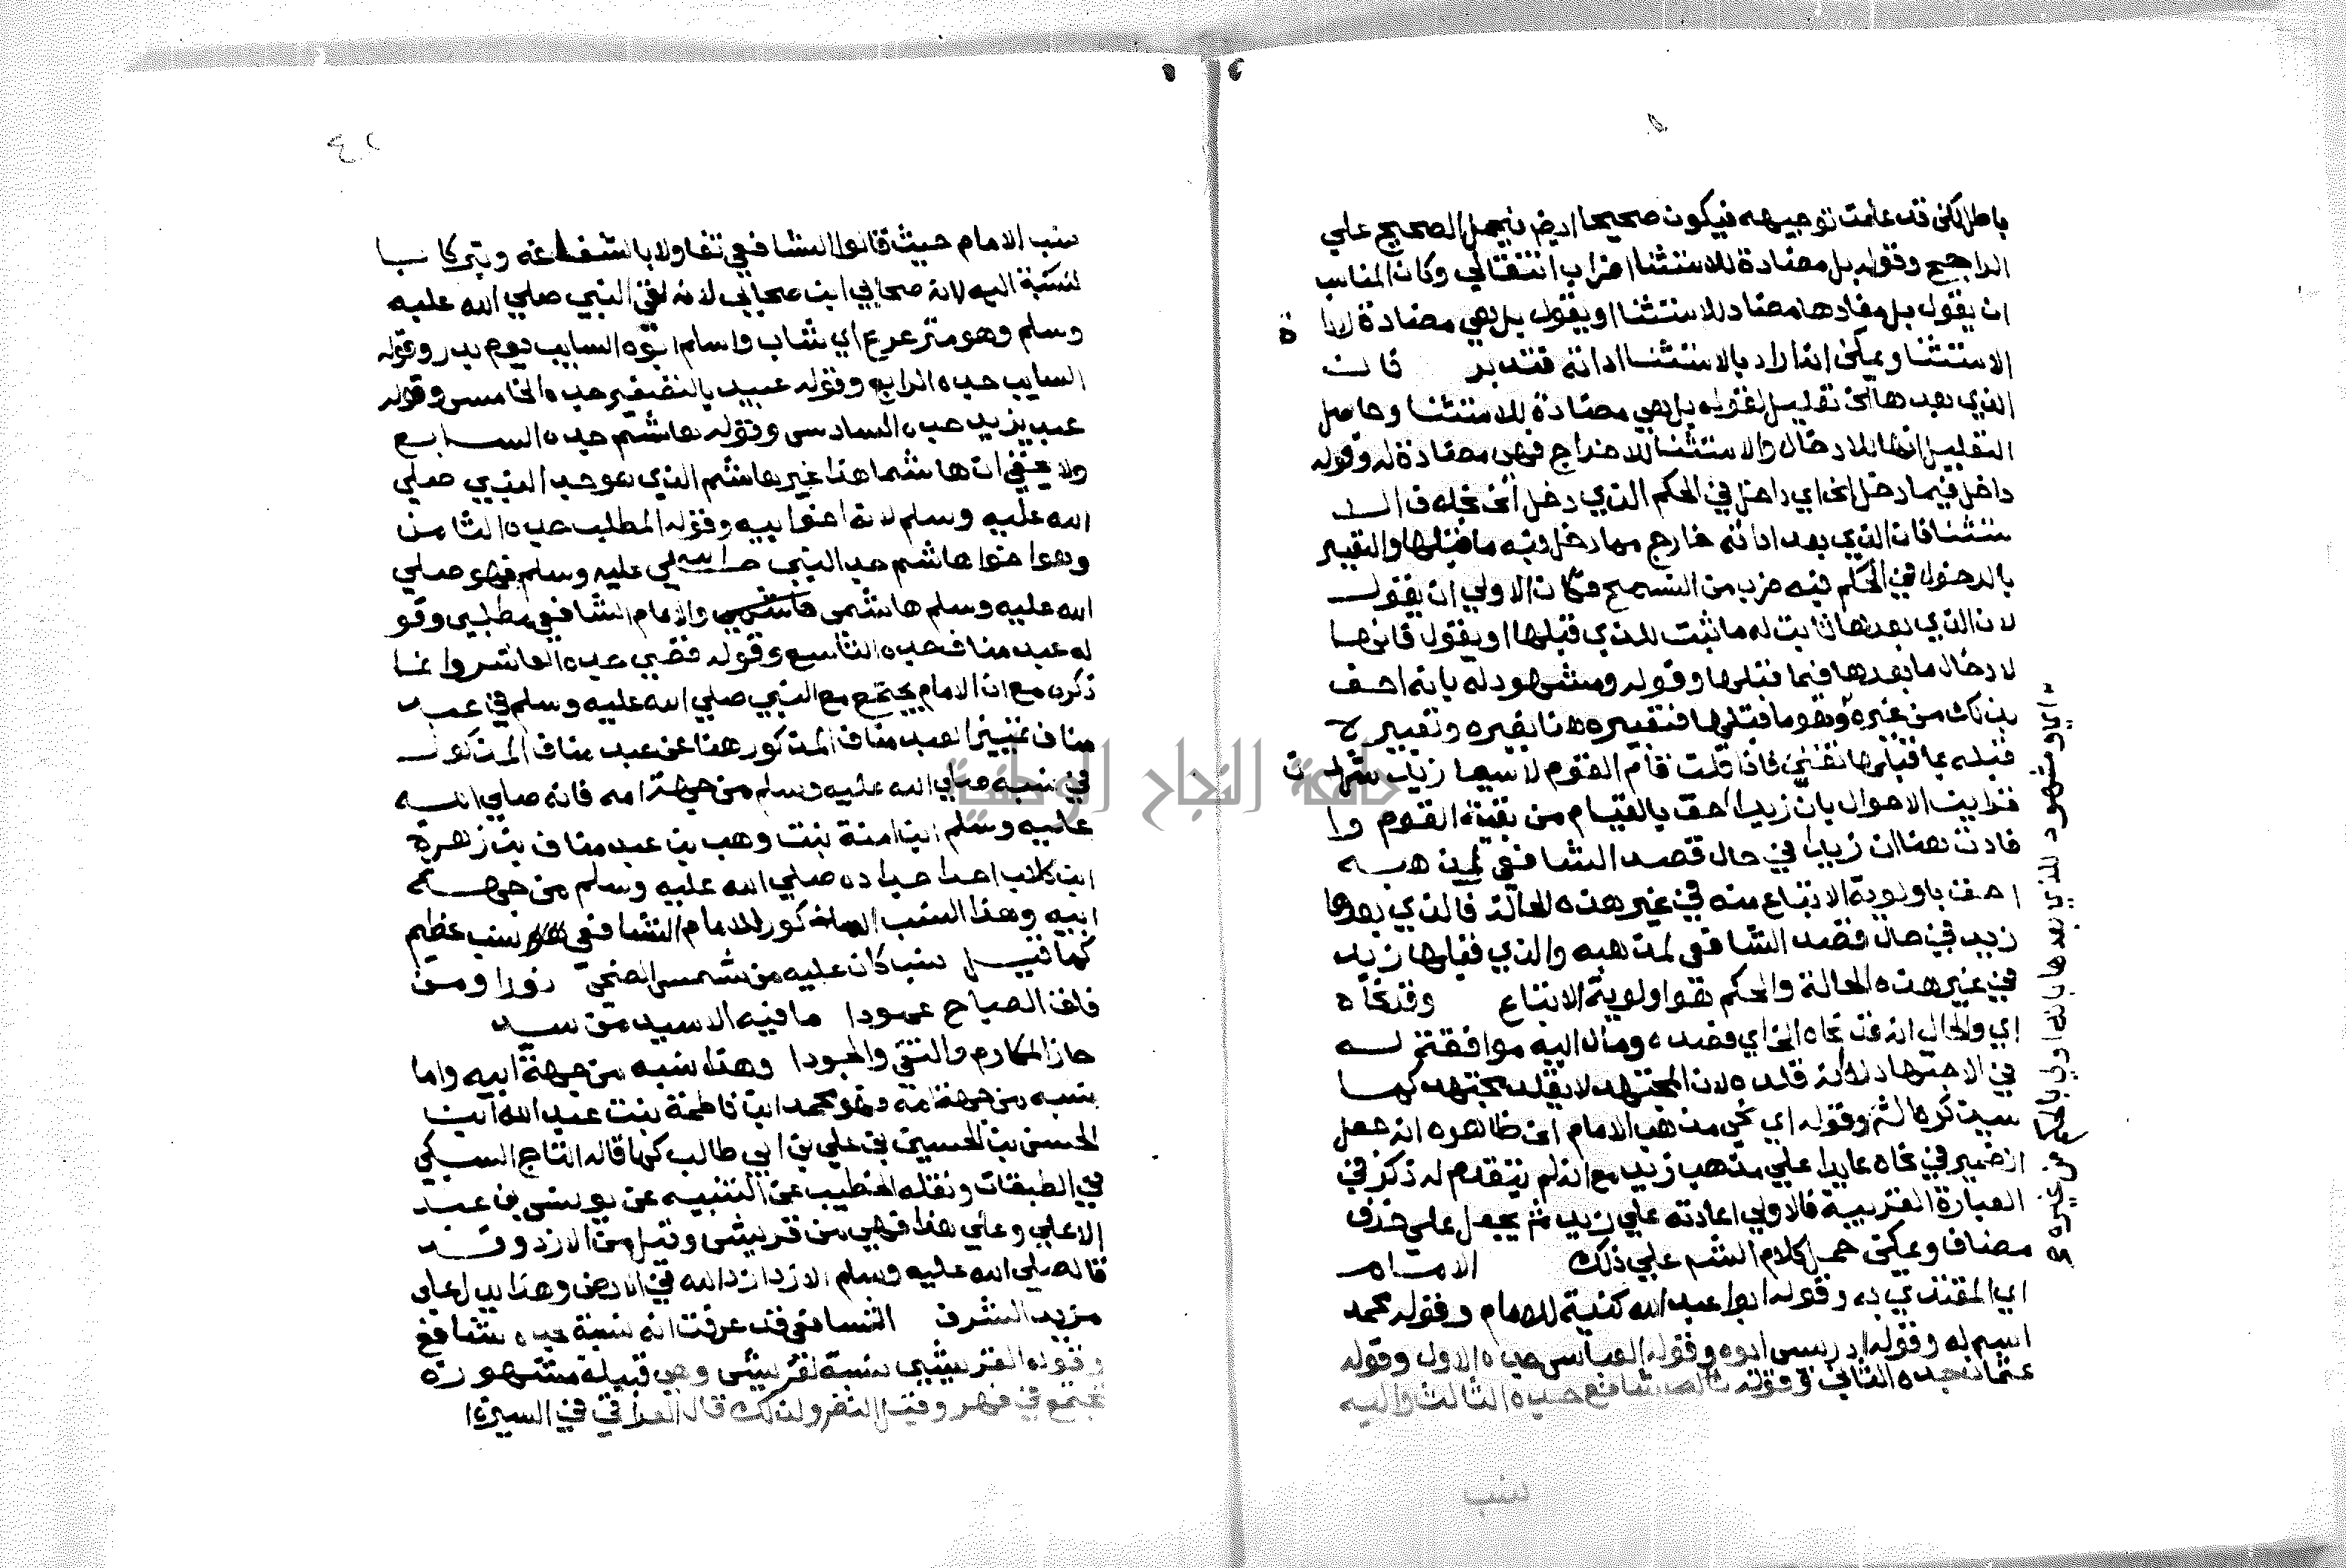 باطل لكن قد علمت توجيهه فيكون صحيحا ايض فيحمل الصحيح علي
الراجح وقوله بل مضادة للاستثنا اضراب انتقالي وكان المناسب
ان يقول بل مفادها مضاد للاستثنا او يقول بل هي مضادة لاداة
الاستثنا ويمكن انه اراد بالاستثنا اداته فتدبر فان
الذي بعدها الخ تعليل لقوله بل هي مضادة للاستثنا وحاصل
التعليل انها للادخال والاستثنا للاخراج فهي مضادة له وقوله
داخل فيما دخل الخ اي داخل في الحكم الذي دخل الخ بخلاف الا
ستثنا فان الذي بعد اداته خارج مما دخل فيه ما قبلها والتعبير
بالدخول في الحكم فيه ضرب من التسمح فكان الاولي ان يقول
لان الذي بعدها ثابت له ما ثبت للذي قبلها او يقول فانها
لادخال ما بعدها فيما قبلها وقوله ومشهود له بانه احق
بذلك من غيره وهو ما قبلها فتعبيره هنا بغيره وتعبيره
قبله بما قبلها تفنن فاذا قلت قام القوم لاسيما زيد شهدت
قراين الاحوال بان زيدا احق بالقيام من بقية القوم وا
فادت هنا ان زيدا في حال قصد الشافعي لمذهبه
احق باولوية الاتباع منه في غير هذه الحالة فالذي بعدها
زيد في حال قصد الشافعي لمذهبه والذي قبلها زيد
في غير هذه الحالة والحكم هو اولوية الاتباع وقد نحاه
اي والحال انه قد نحاه الخ اي قصده ومال اليه موافقته له
في الاجتهاد لا انه قلده لان المجتهد لا يقلد مجتهد كما
سيذكره الشم وقوله اي نحي مذهب الامام الخ ظاهره انه جعل
الضمير في نحاه عايدا علي مذهب زيد مع انه لم يتقدم له ذكر في
العبارة القريبة فالاولي اعادته علي زيد ثم يجعل علي حذف
مضاف ويمكن حمل كلام الشم علي ذلك الامام
اي المقتدي به وقوله ابو عبد الله كنية للامام وقوله محمد
اسم له وقوله ادريس ابوه وقوله العباس جده الاول وقوله
عثمان جده الثاني وقوله شافع جده الثالث واليه
نسب
اي ومشهود للذي بعدها بانه اولي بالحكم من غيره
نسب الامام حيث قالوا الشافعي تفاولا بالشفاعة وتبركا با
لنسبة اليه لانه صحابي ابن صحابي لانه لقي النبي صلي الله عليه
وسلم وهو مترعرع اي شاب واسلم ابوه السايب يوم بدر وقوله
السايب جده الرابع وقوله عبيد بالتصغير جده الخامس وقوله
عبد يزيد جده السادس وقوله هاشم جده السابع
ولا يخفي ان هاشما هذا غير هاشم الذي هو جد النبي صلي
الله عليه وسلم لانه اخو ابيه وقوله المطلب جده الثامن
وهو اخو هاشم جد النبي صلي الله عليه وسلم فهو صلي
الله عليه وسلم هاشمي والامام الشافعي مطلبي وقو
له عبد مناف جده التاسع وقوله قصي جده العاشر وانما
ذكره مع ان الامام يجتمع مع النبي صلي الله عليه وسلم في عبد
مناف تمييزا لعبد مناف المذكور هنا عن عبد مناف المذكور
في نسبه صلي الله عليه وسلم من جهة امه فانه صلي الله
عليه وسلم ابن امنة بنت وهب بن عبد مناف بن زهرة
ابن كلاب احد اجداده صلي الله عليه وسلم من جهة
ابيه وهذا النسب المذكور للامام الشافعي نسب عظيم
كما قيل نسب كان عليه من شمس الضحي نورا ومن
فلق الصباح عمودا ما فيه الا سيد من سيد
حاز المكارم والتقي والجودا وهذا نسبه من جهة ابيه واما
نسبه من جهة امه فهو محمد ابن فاطمة بنت عبد الله ابن
الحسن بن الحسين بن علي بن ابي طالب كما قاله التاج السبكي
في الطبقات ونقله الخطيب عن التنبيه عن يونس بن عبد
الاعلي وعلي هذا فهي من قريش وقيل من الازد وقد
قال صلي الله عليه وسلم الازد ازد الله في الارض وهذا يدل علي
مزيد الشرف الشافعي قد عرفت انه نسبة لجده شافع
وقوله القرشي نسبة لقريش وهي قبيلة مشهورة
تجتمع في فهر وقيل النضر ولذلك قال العراقي في السيرة
جامعة النجاح الوطنية